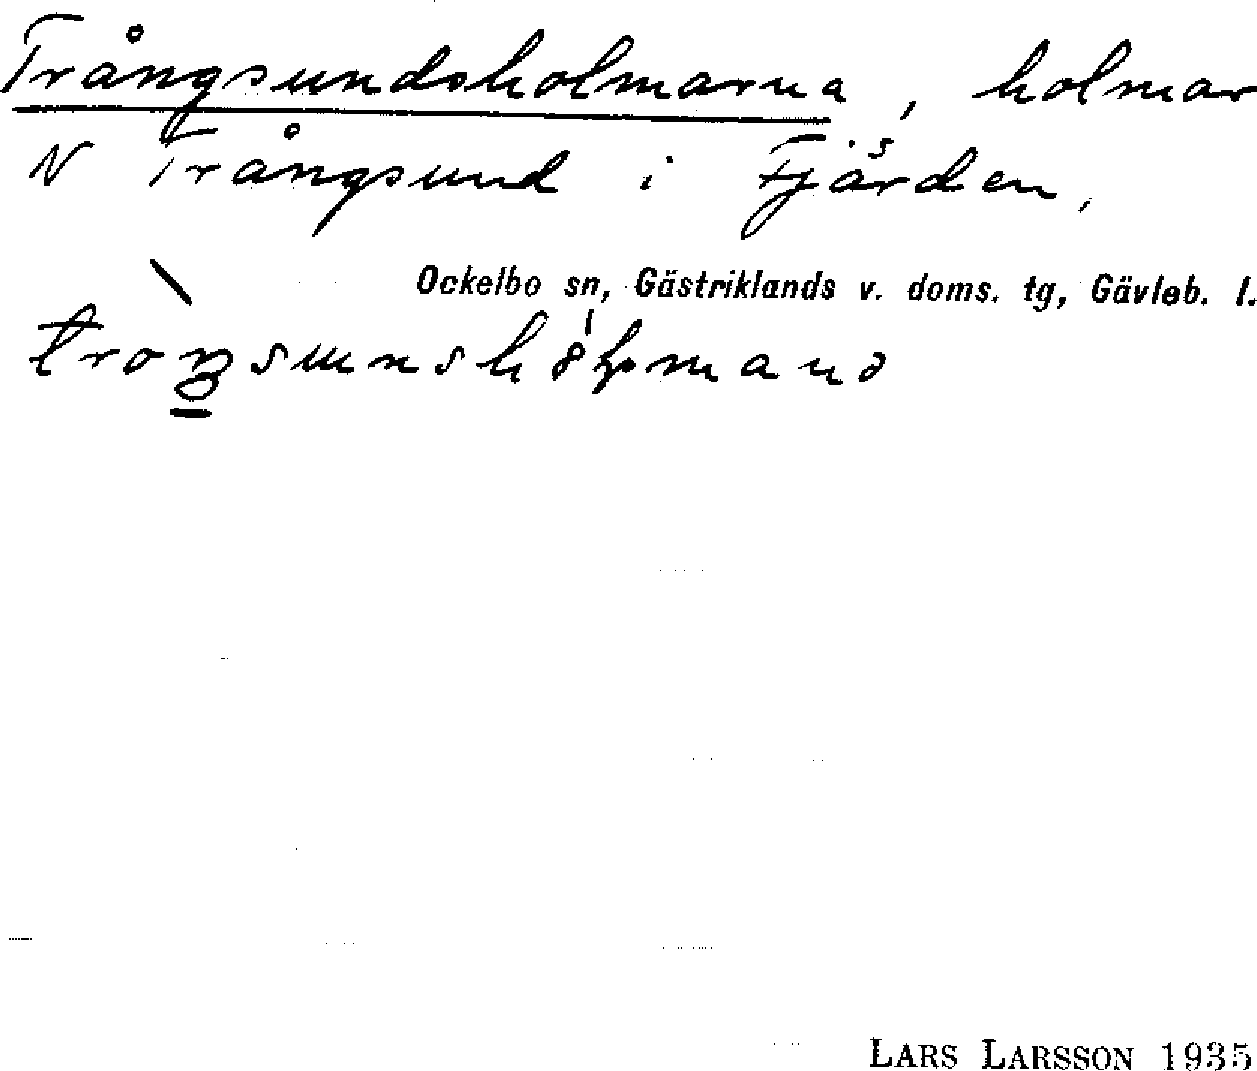 Trångsundsholmarna, holmar
N Trångsund i Fjärden,
Ockelbo sn, Gästriklands v. doms. tg, Gävleb. l.
LARS LARSSON 1935